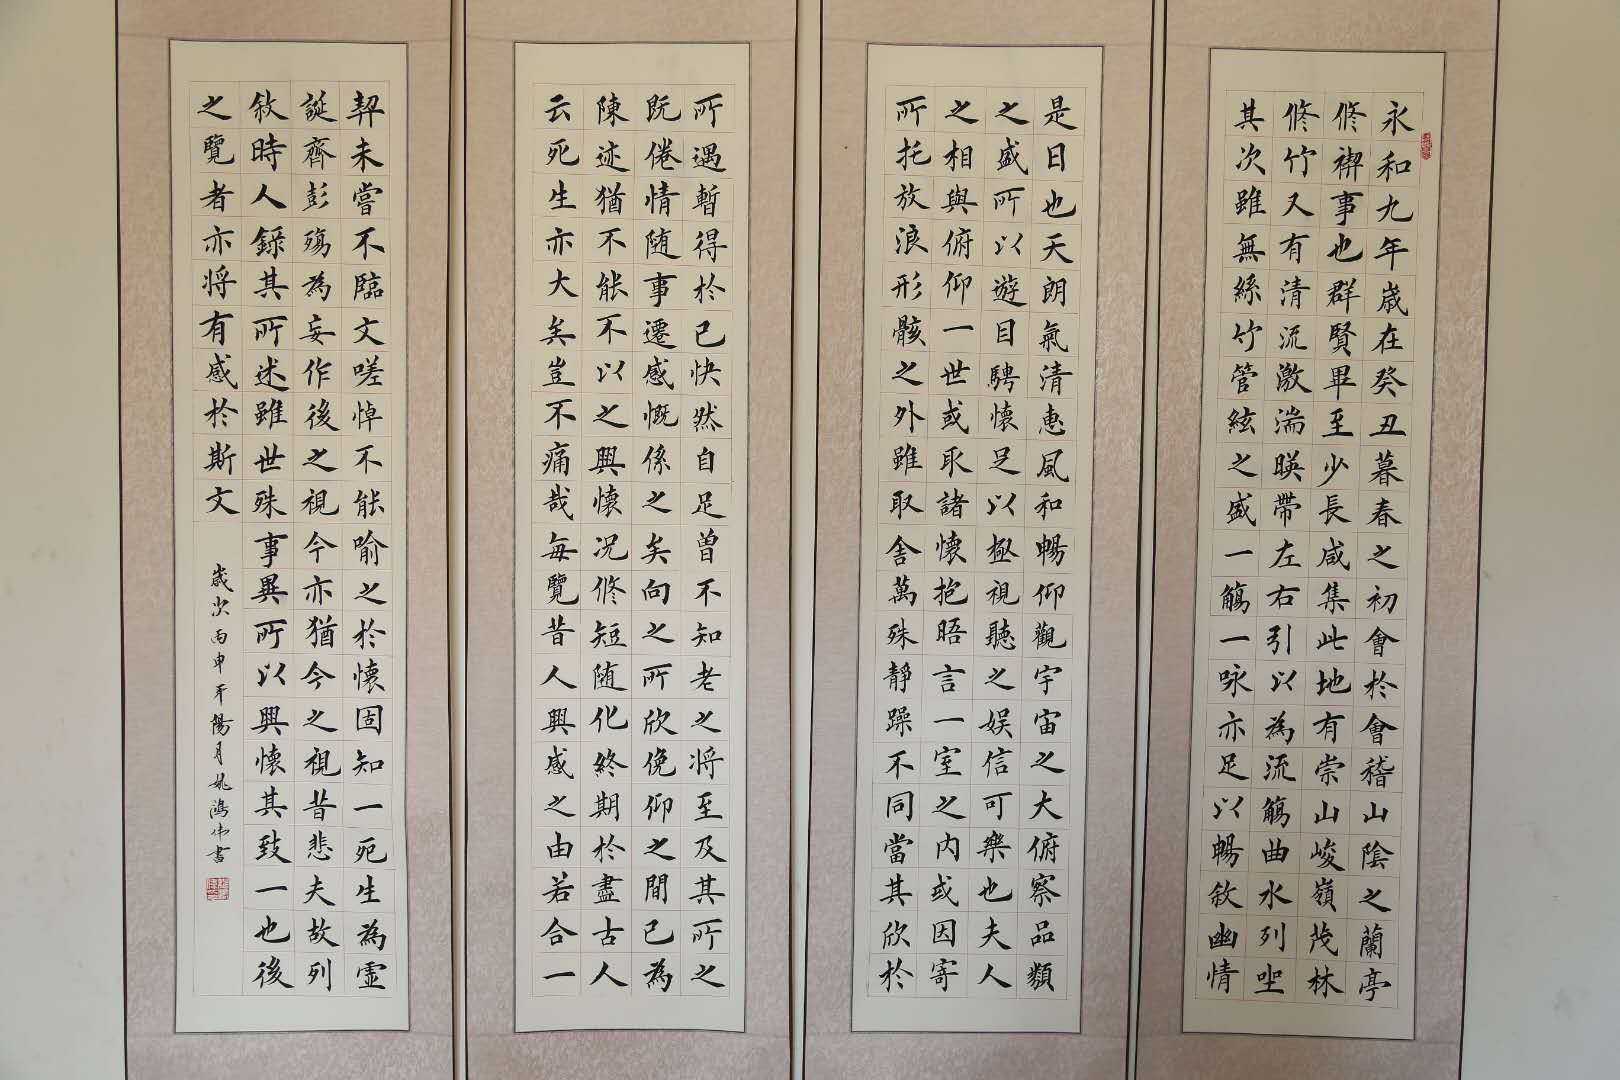 永和九年歲在癸丑暮春之初會於會稽山陰之蘭亭
修禊事也群賢畢至少長咸集此地有崇山峻嶺茂林
修竹又有清流激湍暎帶左右引以為流觴曲水列坐
其次雖無絲竹管絃之盛一觴一咏亦足以暢敘幽情
是日也天朗氣清惠風和暢仰觀宇宙之大俯察品類
之盛所以遊目騁懷足以極視聽之娛信可樂也夫人
之相與俯仰一世或取諸懷抱晤言一室之內或因寄
所托放浪形骸之外雖取舍萬殊靜躁不同當其欣於
所遇暫得於己快然自足曾不知老之將至及其所之
既倦情随事遷感慨係之矣向之所欣俛仰之間已為
陳迹猶不能不以之興懷况修短随化終期於盡古人
云死生亦大矣豈不痛哉每覽昔人興感之由若合一
契未嘗不臨文嗟悼不能喻之於懷固知一死生為虛
誕齊彭殤為妄作後之視今亦猶今之視昔悲夫故列
敘時人錄其所述雖世殊事異所以興懷其致一也後
之覽者亦將有感於斯文
歲次丙申年陽月姚鴻伟書